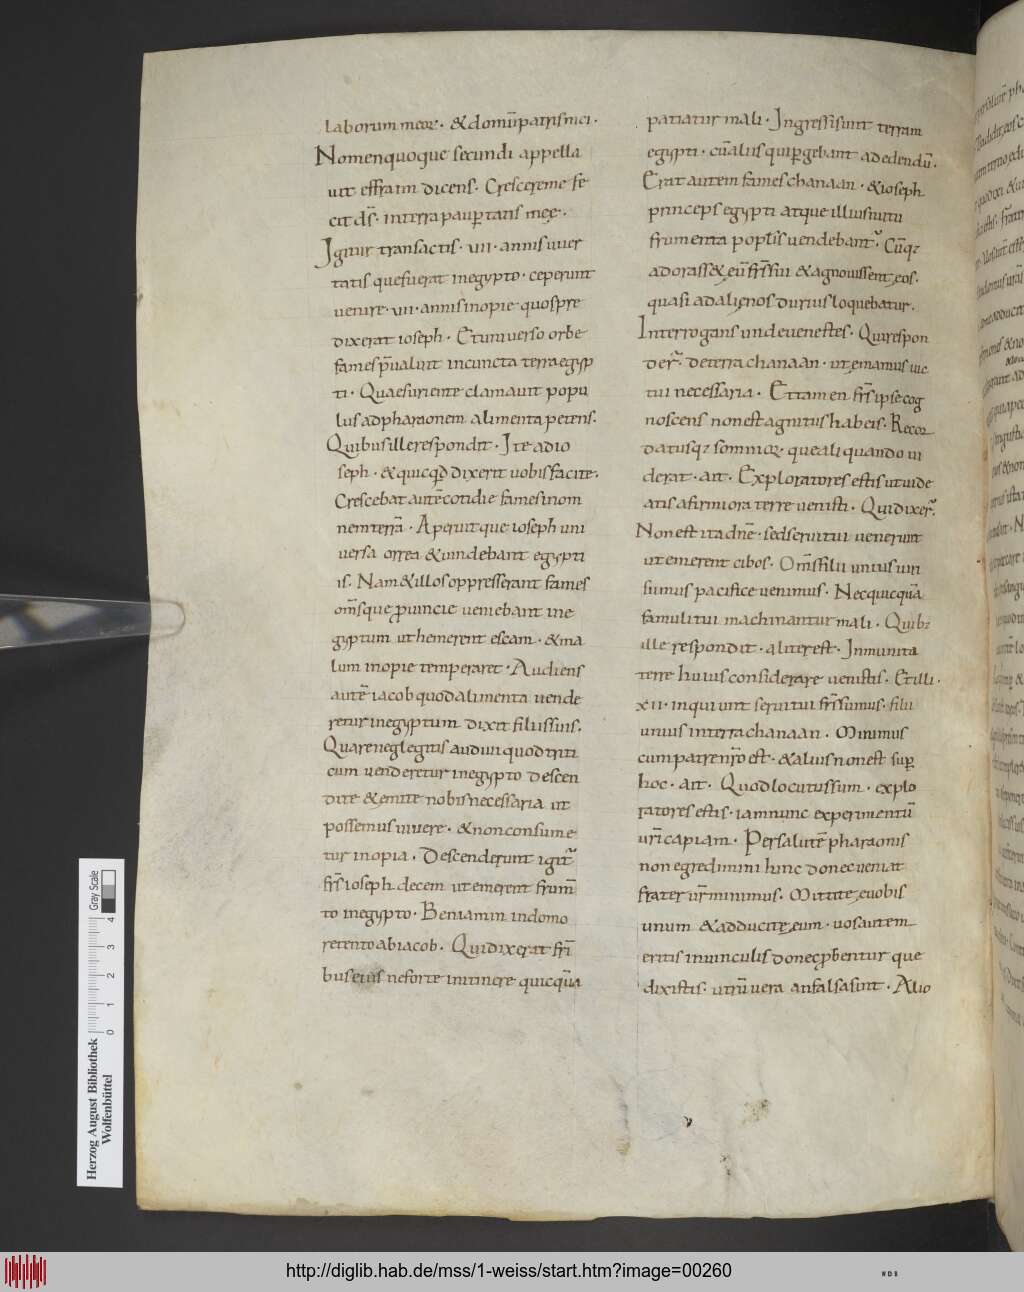 laborum meoꝝ · & domū patris mei ·
Nomen quoque secundi appella
uit effraim dicens · Crescere me fe
cit dś · in terra paupertatis meę ·
Igitur transactis · vii · annis uber
tatis que fuerat in egypto · ceperunt
uenire · vii · annis inopie quos pre
dixerat ioseph · Et in uniuerso orbe
fames p̄ualuit in cuncta terra egyp
ti · Qua esuriente clamauit popu
lus ad pharaonem alimenta petens ·
Quibus ille respondit · Ite ad io
seph · & quicqd dixerit uobis facite ·
Crescebat autē cotidie fames in om
nem terrā · Aperuitque ioseph uni
uersa orrea & uendebant egypti
is · Nam & illos oppresserant fames
om̄sque ꝓuincie ueniebant in e
gyptum ut hemerent escam · & ma
lum inopie temperaret · Audiens
autē iacob quod alimenta uende
retur in egyptum dixit filiis suis ·
Quare neglegitis audiui quod triti
cum uenderetur in egypto descen
dite & emite nobis necessaria ut
possemus uiuere · & non consume
tur inopia · Descenderunt igit᷑
frs̄ ioseph decem ut emerent frum̄
to in egypto · Beniamin in domo
retento ab iacob · Qui dixerat fr̄i
bus eius ne forte in itinere quicquā
patiatur mali · Ingressi sunt terram
egypti · cū aliis qui pgebant ad edendū ·
Erat autem fames chanaan · & ioseph
princeps egypti atque illius nutu
frumenta poplis uendebant᷑ · Cūqꝫ
adorass& eū frs̄ sui & agnouissent eos ·
quasi ad alienos durius loquebatur ·
Interrogans unde uenestes · Qui respon
der᷑ · de terra chanaan · ut emamus uic
tui necessaria · Et tamen frs̄ ipse cog
noscens non est agnitus hab eis · Recor
datusqꝫ somnioꝝ · que aliquando ui
derat · ait · Exploratores estis ut uide
atis afirmiora terre uenisti · Qui dixer᷑ ·
Non est ita dn̄e · sed serui tui uenerunt
ut emerent cibos · Om̄s filii unius uiri
sumus pacifice uenimus · Nec quicquā
famuli tui machinantur mali · Quibꝫ
ille respondit · aliter est · Inmunita
terre huius considerare uenistis · Et illi ·
xii · inquiunt serui tui frs̄ sumus · filii
unius in terra chanaan · Minimus
cum patre nr̄o est · & alius non est sup
hoc · ait · Quod locutus sum · explo
ratores estis · iam nunc experimentū
ur̄i capiam · Per salutē pharaonis
non egredimini hinc donec ueniat
frater ur̄ minimus · Mittite e uobis
unum & adducite eum · uos autem
eritis in uinculis donec ꝓbentur que
dixistis · utrū uera an falsa sint · Alio
Herzog August Bibliothek
Wolfenbüttel
0 1 2 3 4
Gray Scale
http://diglib.hab.de/mss/1-weiss/start.htm?image=00260